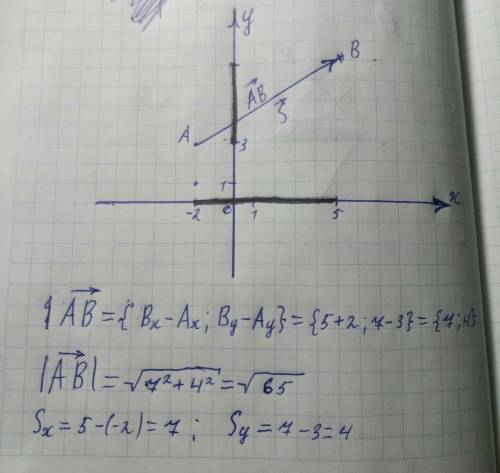 y
B
→AB
→S
A
3
1
-2 0 1 5 x
→AB = { Bx - Ax ; By - Ay } = {5+2 ; 7-3} = {7 ; 4}
|→AB| = √7²+4² = √65
Sx = 5 - (-2) = 7 ; Sy = 7 - 3 = 4